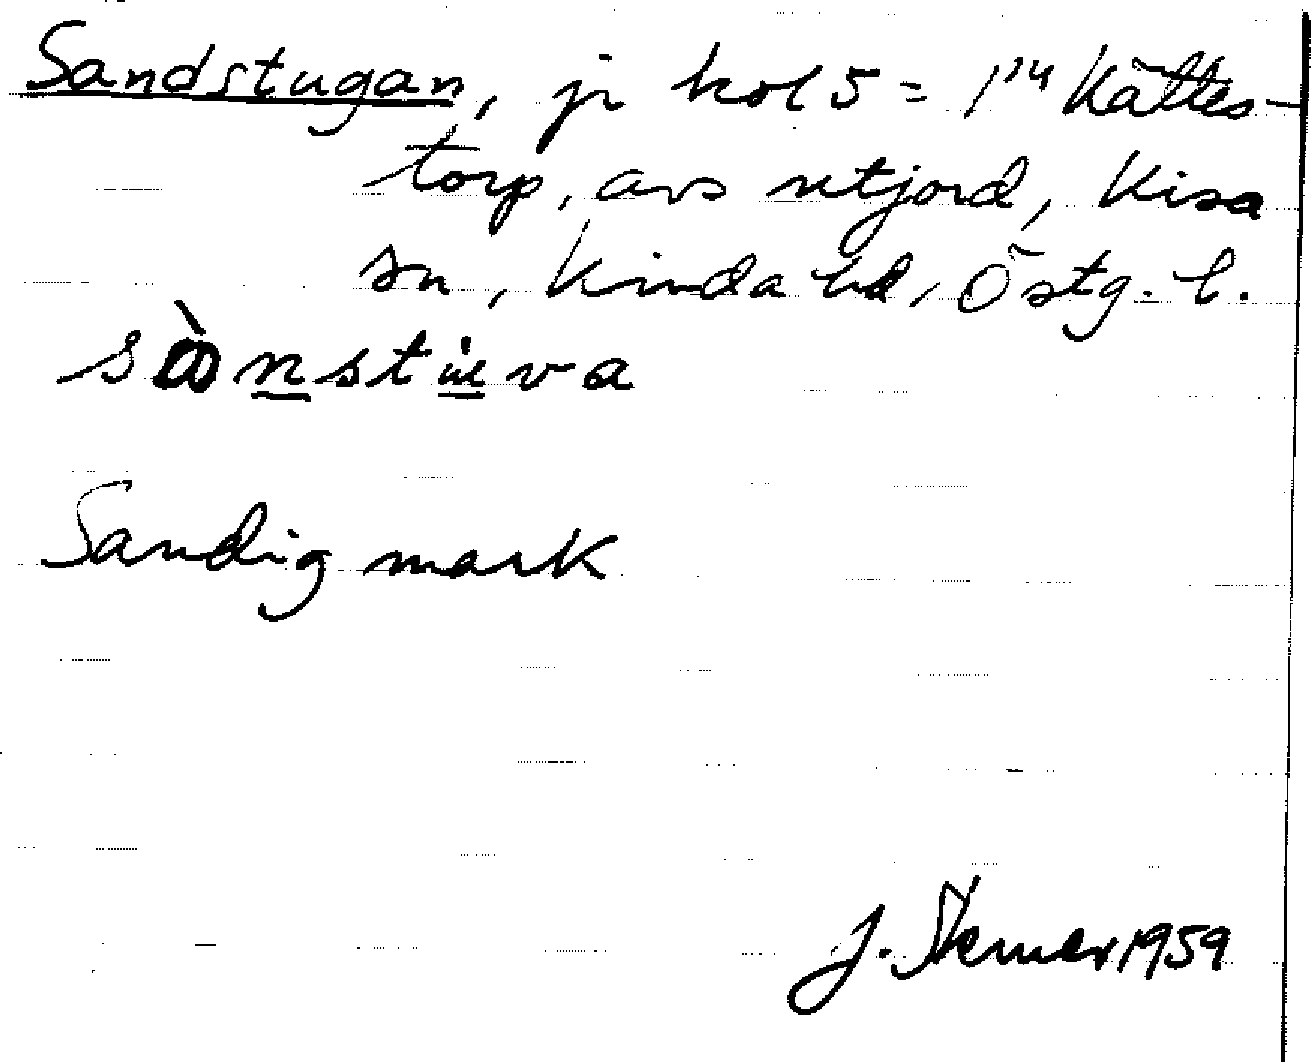 Sandstugan, jr kol 5 = 1¹⁴ Kättes-
torp, avs utjord, Kisa
sn, Kinda hd, Östg. l.
sànstùva
Sandig mark
J. Stemer 1959